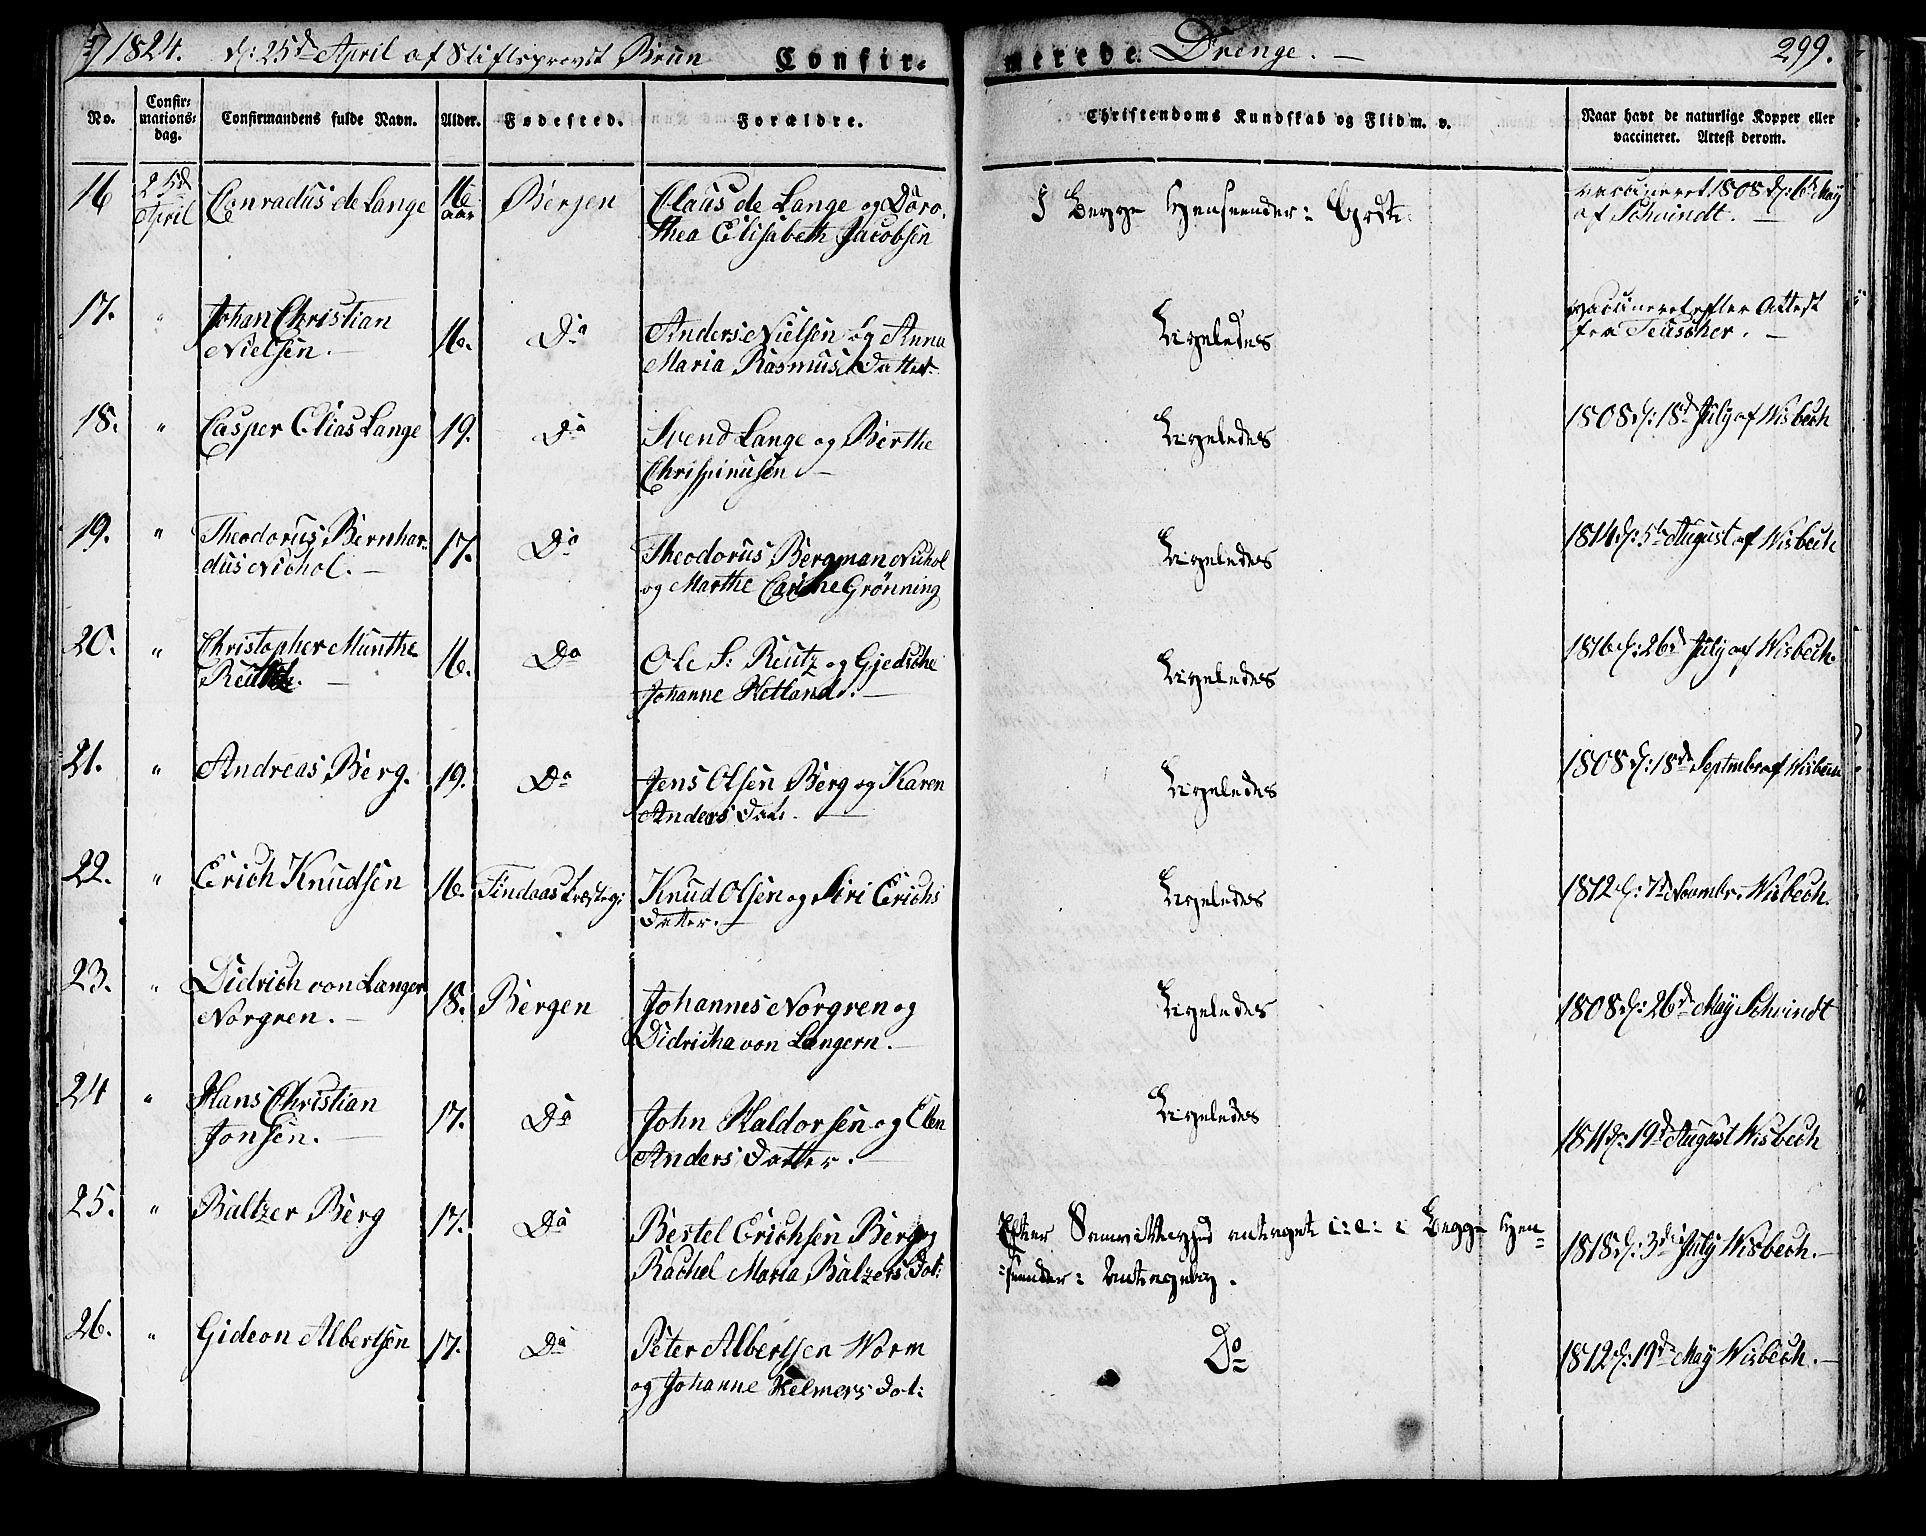 1824. d: 25de April af Stiftsprovst Brun Confir-
merede Drenge. — 299.
No. Confir-
mations-
dag. Confirmandens fulde Navn. Alder. Fødested. Forældre. Christendoms Kundskab og Flid m. v. Naar havt de naturlige Kopper eller
vaccineret. Attest derom.
16 25de
April Conradus de Lange 16
aar Bergen Claus de Lange og Doro-
thea Elisabeth Jacobsen
I begge Henseender: Godt.
vaccineret 1808 d: 6te May
af Schvindt. —
17. " Johan Christian
Nielsen. — 16. Do Anders Nielsen og Anna
Maria Rasmus Datter.
Ligeledes
vaccineret efter Attest
fra Teuscher. —
18. " Casper Elias Lange 19. Do Svend Lange og Berthe
Chrispinusen. —
Ligeledes
1808 d: 18de July af Wisbech
19. " Theodorus Bernhar-
dus Nichol. — 17. Do Theodorus Bergman Nichol
og Marthe Carine Grönning
Ligeledes
1814 d: 5te August af Wisbech
20. " Christopher Munthe
Reutz. — 16. Do Ole S: Reutz og Gjedsche
Johanne Hetland. —
Ligeledes
1816 d: 26de July af Wisbech.
21. " Andreas Berg. 19. Do Jens Olsen Berg og Karen
Anders Dat. —
Ligeledes
1808 d: 18de Septmbr af Wisbech
22. " Erich Knudsen 16. Findaas Præsteg: Knud Olsen og Siri Erichs
Datter. —
Ligeledes
1812 d: 7de Novmbr. Wisbech.
23. " Didrich von Langen
Norgren. — 18. Bergen Johannes Norgren og
Didricha von Langern. —
Ligeledes
1808 d: 26de May Schvindt
24 " Hans Christian
Jonsen. — 17. Do John Haldorsen og Elen
Anders Datter. —
Ligeledes
1811 d: 19de August Wisbech
25. " Baltzer Berg 17. Do Bertel Erichsen Berg og
Rachel Maria Balzers Dat:
Efter Samvittighed antaget i: e: i begge Hen-
seender: Antagelig.
1818 d: 3de July Wisbech. —
26. " Gideon Albertsen 17. Do Peter Albertsen Worm
og Johanne Helmers Dat:
Do
1812 d: 19de May Wisbech. —